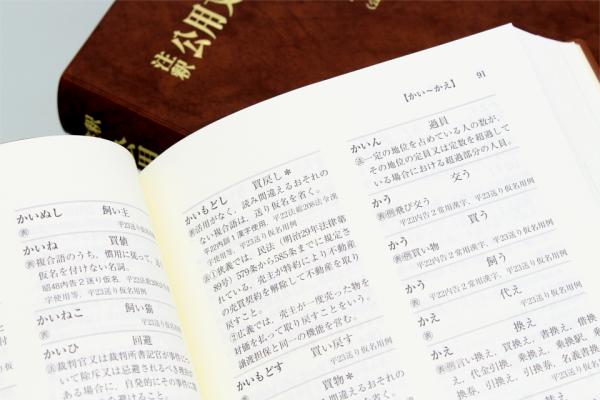 注釈
公用文
釈
用
かいぬし 飼い主
かいね 買値
複合語のうち、慣用に従って、送り
仮名を付けない名詞。
昭48内告2送り仮名、平22法総208法令漢
字使用等、平23送り仮名用例
かいねこ 飼い猫
平23送り仮名用例
かいひ 回避
裁判官又は裁判所書記官が事件につ
いて除斥又は忌避されるべき
ある場合に、自発的にその事件に
を避けること。
かいもどし 買戻し*
活用がなく、読み間違えるおそれの
ない複合語は、送り仮名を省く。
平22内訓1漢字使用、平22法総208法令漢
字使用等、平23送り仮名用例
①狭義では、民法(明治29年法律第
89号)579条から585条までに規定さ
れている、売主が特約により不動産
の売買契約を解除して不動産を取り
戻すこと。
②広義では、売主が一度売った物を
対価を払って取り戻すことをいう。
譲渡担保と同一の機能を営む。
かいもどす 買い戻す
平23送り仮名用例
買物*
読み間違えるおそれの
【かい〜かえ】 91
かいん 過員
一定の地位を占めている人の数が、
その地位の定員又は定数を超過して
いる場合における超過部分の人員。
かう 交う
飛び交う
平22内告2常用漢字、平23送り仮名用例
かう 買う
買い物
平22内告2常用漢字、平23送り仮名用例
かう 飼う
平22内告2常用漢字、平23送り仮名用例
かえ 代え
平23送り仮名用例
かえ 換え
言い換え、買換え、書換え、借換
え、代金引換え、乗換え、乗換駅、乗
換券、引換え、引換券、名義書換
替え